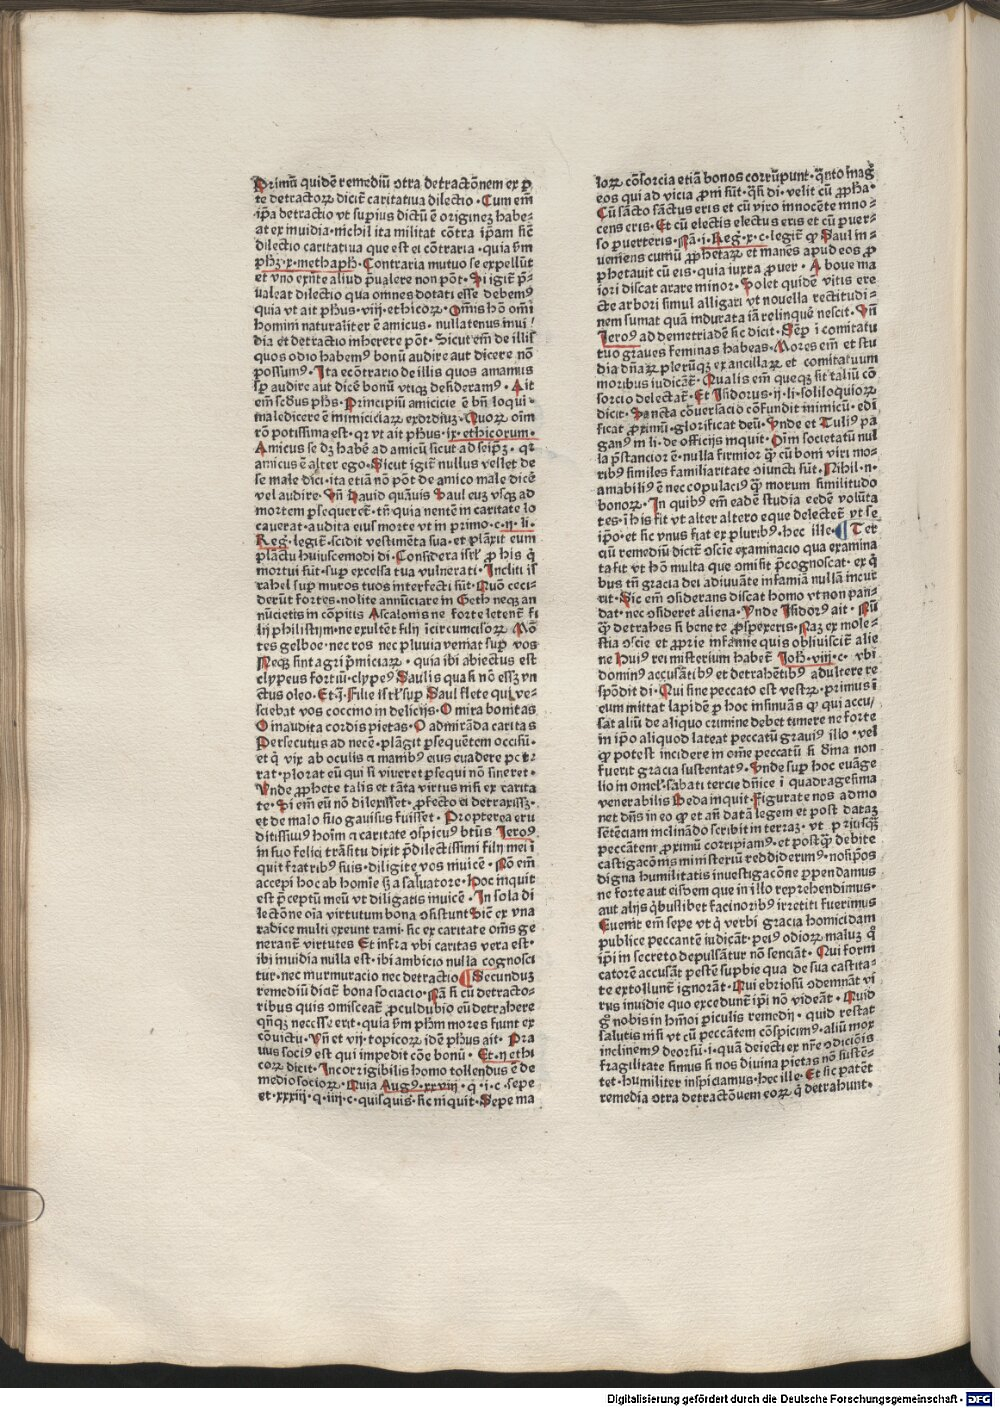 Primū quidē remediū ɔtra detractōnem ex p̲
te detractoꝝ dicit̄ caritatiua dilectio · Cum em̄
ip̄a detractio vt superius dictū ē originez habe-
at ex inuidia · nichil ita militat cōtra ip̄am sic̄
dilectio caritatiua que est ei cōtraria · quia s̄m
ph̄z · x · methaph̄ · Contraria mutuo se expellūt
et vno exn̄te aliud p̄ualere non pōt · Si igit̄ p̄-
ualeat dilectio qua omnes dotati esse debemꝰ
quia vt ait ph̄us · viij · ethicoꝝ · Om̄is hō om̄i
homini naturaliter ē amicus · nullatenus inui
dia et detractio inherere pōt · Sicut em̄ de illis
quos odio habemꝰ bonū audire aut dicere nō
possumꝰ · Ita ecōtrario de illis quos amamus
sp̄ audire aut dicē bonū vtiqꝫ desideramꝰ · Ait
em̄ scd̄us ph̄s · Principiū amicicie ē bn̄ loqui ·
maledicere ē inimiciciaꝝ exordiuz · Quoꝝ oīm
rō potissima est · qꝛ vt ait ph̄us · ix · ethicorum ·
Amicus se dꝫ habē ad amicū sicut ad seip̄ꝫ · qꝛ
amicus ē alter ego · Sicut igit̄ nullus vellet de
se male dici · ita etiā nō pōt de amico male dicē
vel audire · Vn̄ Dauid quāuis Saul euꝫ vsqꝫ ad
mortem p̲sequeret̄ · tn̄ quia nentēm caritate lo
cauerat · audita eius morte vt in primo · c · ij · li ·
Reḡ · legit̄ · scidit vestimēta sua · et plāxit eum
plāctu huiuscemodi di · Considera isrl̄ p̲ his q̇
mortui sūt · sup̲ excelsa tua vulnerati · Incliti is
rahel sup̲ muros tuos interfecti sūt · Quō ceci-
derūt fortes · nolite annūciare in Geth neqꝫ an
nūcietis in cōpitis Ascalonis ne forte letent̄ fi
lij philistijm · ne exultēt filij īcircumcisoꝝ · Mō
tes gelboe · nec ros nec pluuia veniat sup̲ vos
Neqꝫ sint agri p̄miciaꝝ · quia ibi abiectus est
clypeus fortiū · clypeꝰ Saulis quasi nō essꝫ vn
ctus oleo · Et · q̄ · Filie isrl̄ sup̲ Saul flete qui ve-
sciebat vos coccino in delicijs · O mira bonitas
O inaudita cordis pietas · O admirāda caritas
Persecutus ad necē · plāgit p̲sequētem occisū ·
et q̇ vix ab oculis a manibꝰ eius euadere pote
rat · plorat eū qui si viveret p̲sequi nō sineret ·
Vnde p̲phete talis et tāta virtus nisi ex carita
te · Si em̄ eū nō dilexisset · p̲fecto ei detraxissꝫ ·
et de malo suo gauisus fuisset · Propterea eru
ditissimꝰ hoīm a caritate ɔspicuꝰ btūs Ieroꝰ
in suo felici trāsitu dixit p̄dilectissimi filij mei ī
quit fratribꝰ suis · diligite vos inuicē · Nō em̄
accepi hoc ab homīe sꝫ a saluatore · hoc inquit
est p̄ceptū meū vt diligatis inuicē · In sola di
lectōne oīa virtutum bona ɔsistunt Sic̄ ex vna
radice multi exeunt rami · sic ex caritate om̄s ge
nerant̄ virtutes Et infra vbi caritas vera est ·
ibi inuidia nulla est · ibi ambicio nulla cognosci
tur · nec murmuracio nec detractio ¶ Secunduꝫ
remediū dicit̄ bona sociacio · Nā si cū detracto-
ribus quis ɔmisceat̄ p̲culdubio eū detrahere
qn̄qꝫ necesse erit · quia s̄m ph̄m mores fiunt ex
cōuictu · Vn̄ et vij · topicoꝝ idē ph̄us ait · Pra
uus sociꝰ est qui impedit cōe bonū · Et · ij ethi
coꝝ dicit · Incorrigibilis homo tollendus ē de
medio socioꝝ · Quia Augꝰ · xxviij · q̄ · i · c · sepe
et · xxxiij · q̄ · iiij · c · quisquis · sic inquit · Sepe ma
loꝝ cōsorcia etiā bonos corrūpunt · q̄nto mag̊
eos qui ad vicia p̲ni sūt · q̄si di · velit cū p̲pha ·
Cū sācto sāctus eris et cū viro innocēte inno-
cens eris · Et cū electis electus eris et cū p̲uer-
so p̲uerteris · Nā · i · Reḡ · x · c · legit̄ ꝙ Saul in-
ueniens cuneū p̲phetaꝝ et manēs apud eos p̲
phetauit cū eis · quia iuxta p̲uer · A boue ma
iori discat arare minor · Solet quidē vitis ere
cte arbori simul alligari vt nouella rectitudi-
nem sumat quā indurata iā relinquē nescit · Vn̄
Ieroꝰ ad demetriadē sic dicit · Sēp̲ ī comitatu
tuo graues feminas habeas · Mores em̄ et stu
dia dn̄aꝝ plerūqꝫ ex ancillaꝝ et comitatuum
moribus iudicāt̄ · Qualis em̄ queqꝫ sit taliū cō
sorcio delectat̄ · Et Isidorus · ij · li · soliloquioꝝ
dicit · Sancta cōuersacio cōfundit inimicū · edi
ficat p̲ximū · glorificat deū · Vnde et Tuliꝰ pa
ganꝰ in li · de officijs inquit · Oīm societatū nul
la p̄stancior ē · nulla firmior q̄ cū boni viri mo-
ribꝰ similes familiaritate ɔiuncti sūt · Nihil · n ·
amabiliꝰ ē nec copulaciꝰ q̄ morum similitudo
bonoꝝ · In quibꝰ em̄ eadē studia eedē volūta
tes · ī his fit vt alter altero eque delectet̄ vt se
ip̄o · et fit vnus fiat ex pluribꝰ · hec ille · ¶ Ter
ciū remediū dicit̄ ɔscīe examinacio qua examina
ta fit vt hō multa que ɔmisit p̄cognoscat · ex q̇
bus tn̄ gracia dei adiuuāte infamiā nullā incur
rit · Sic em̄ ɔsiderans discat homo vt non pan-
dat · nec ɔsideret aliena · Vnde Isidorꝰ ait · Nū
q̄ detrahes si bene te p̲spexeris · Naꝫ ex mole-
stia ɔscīe et p̲prie infamie quis obliuiscit̄ alie
ne Huiꝰ rei misterium habet̄ Ioh̄ · viij · c · vbi
dominꝰ accusātibꝰ et detrahētibꝰ adultere re
spōdit di · Qui sine peccato est vestꝝ · primus ī
eum mittat lapidē p̲ hoc insinuās ꝙ qui accu/
sat aliū de aliquo crimine debet timere ne forte
in ip̄o aliquod lateat peccatū grauiꝰ illo · vel
ꝙ potest incidere in om̄e peccatū si diuīa non
fuerit gracia sustentatꝰ · Vnde sup̲ hoc euāge
lio in omel̄ · sabati tercie dn̄ice ī quadragesima
venerabilis Beda inquit · Figurate nos admo
net dn̄s in eo ꝙ et an̄ datā legem et post dataꝫ
sētēciam inclinādo scribit in terraꝫ · vt p̲riusqꝫ
peccātem p̲ximū corripiamꝰ · et postq̄ debite
castigacōnis ministeriū reddiderimꝰ · nosip̄os
digna humilitatis inuestigacōne p̲pendamus
ne forte aut eisdem que in illo reprehendimus ·
aut alijs q̇bꝰlibet facinoribꝰ irretiti fuerimus
Euenit em̄ sepe vt q̇ verbi gracia homicidam
publice peccantē iudicāt · peiꝰ odioꝝ maluꝫ q̊
ip̄i in secreto depulsātur nō senciāt · Qui forni
catorē accusāt pestē sup̲bie qua de sua castita-
te extollunt̄ ignorāt · Qui ebriosū ɔdemnāt vi
rus inuidie quo excedunt̄ ip̄i nō videāt · Quid
g̊ nobis in hm̄oi p̲iculis remedij · quid restat
salutis nisi vt cū peccātem cōspicimꝰ · aliū mox
inclinemꝰ deorsū · i · quā deiecti ex nr̄e ɔdiciōis
fragilitate simus si nos diuina pietas nō sustē-
tet · humiliter inspiciamus · hec ille · Et sic patēt
remedia ɔtra detractōnem eoꝝ q̇ detrahunt ·
Digitalisierung gefördert durch die Deutsche Forschungsgemeinschaft - DFG